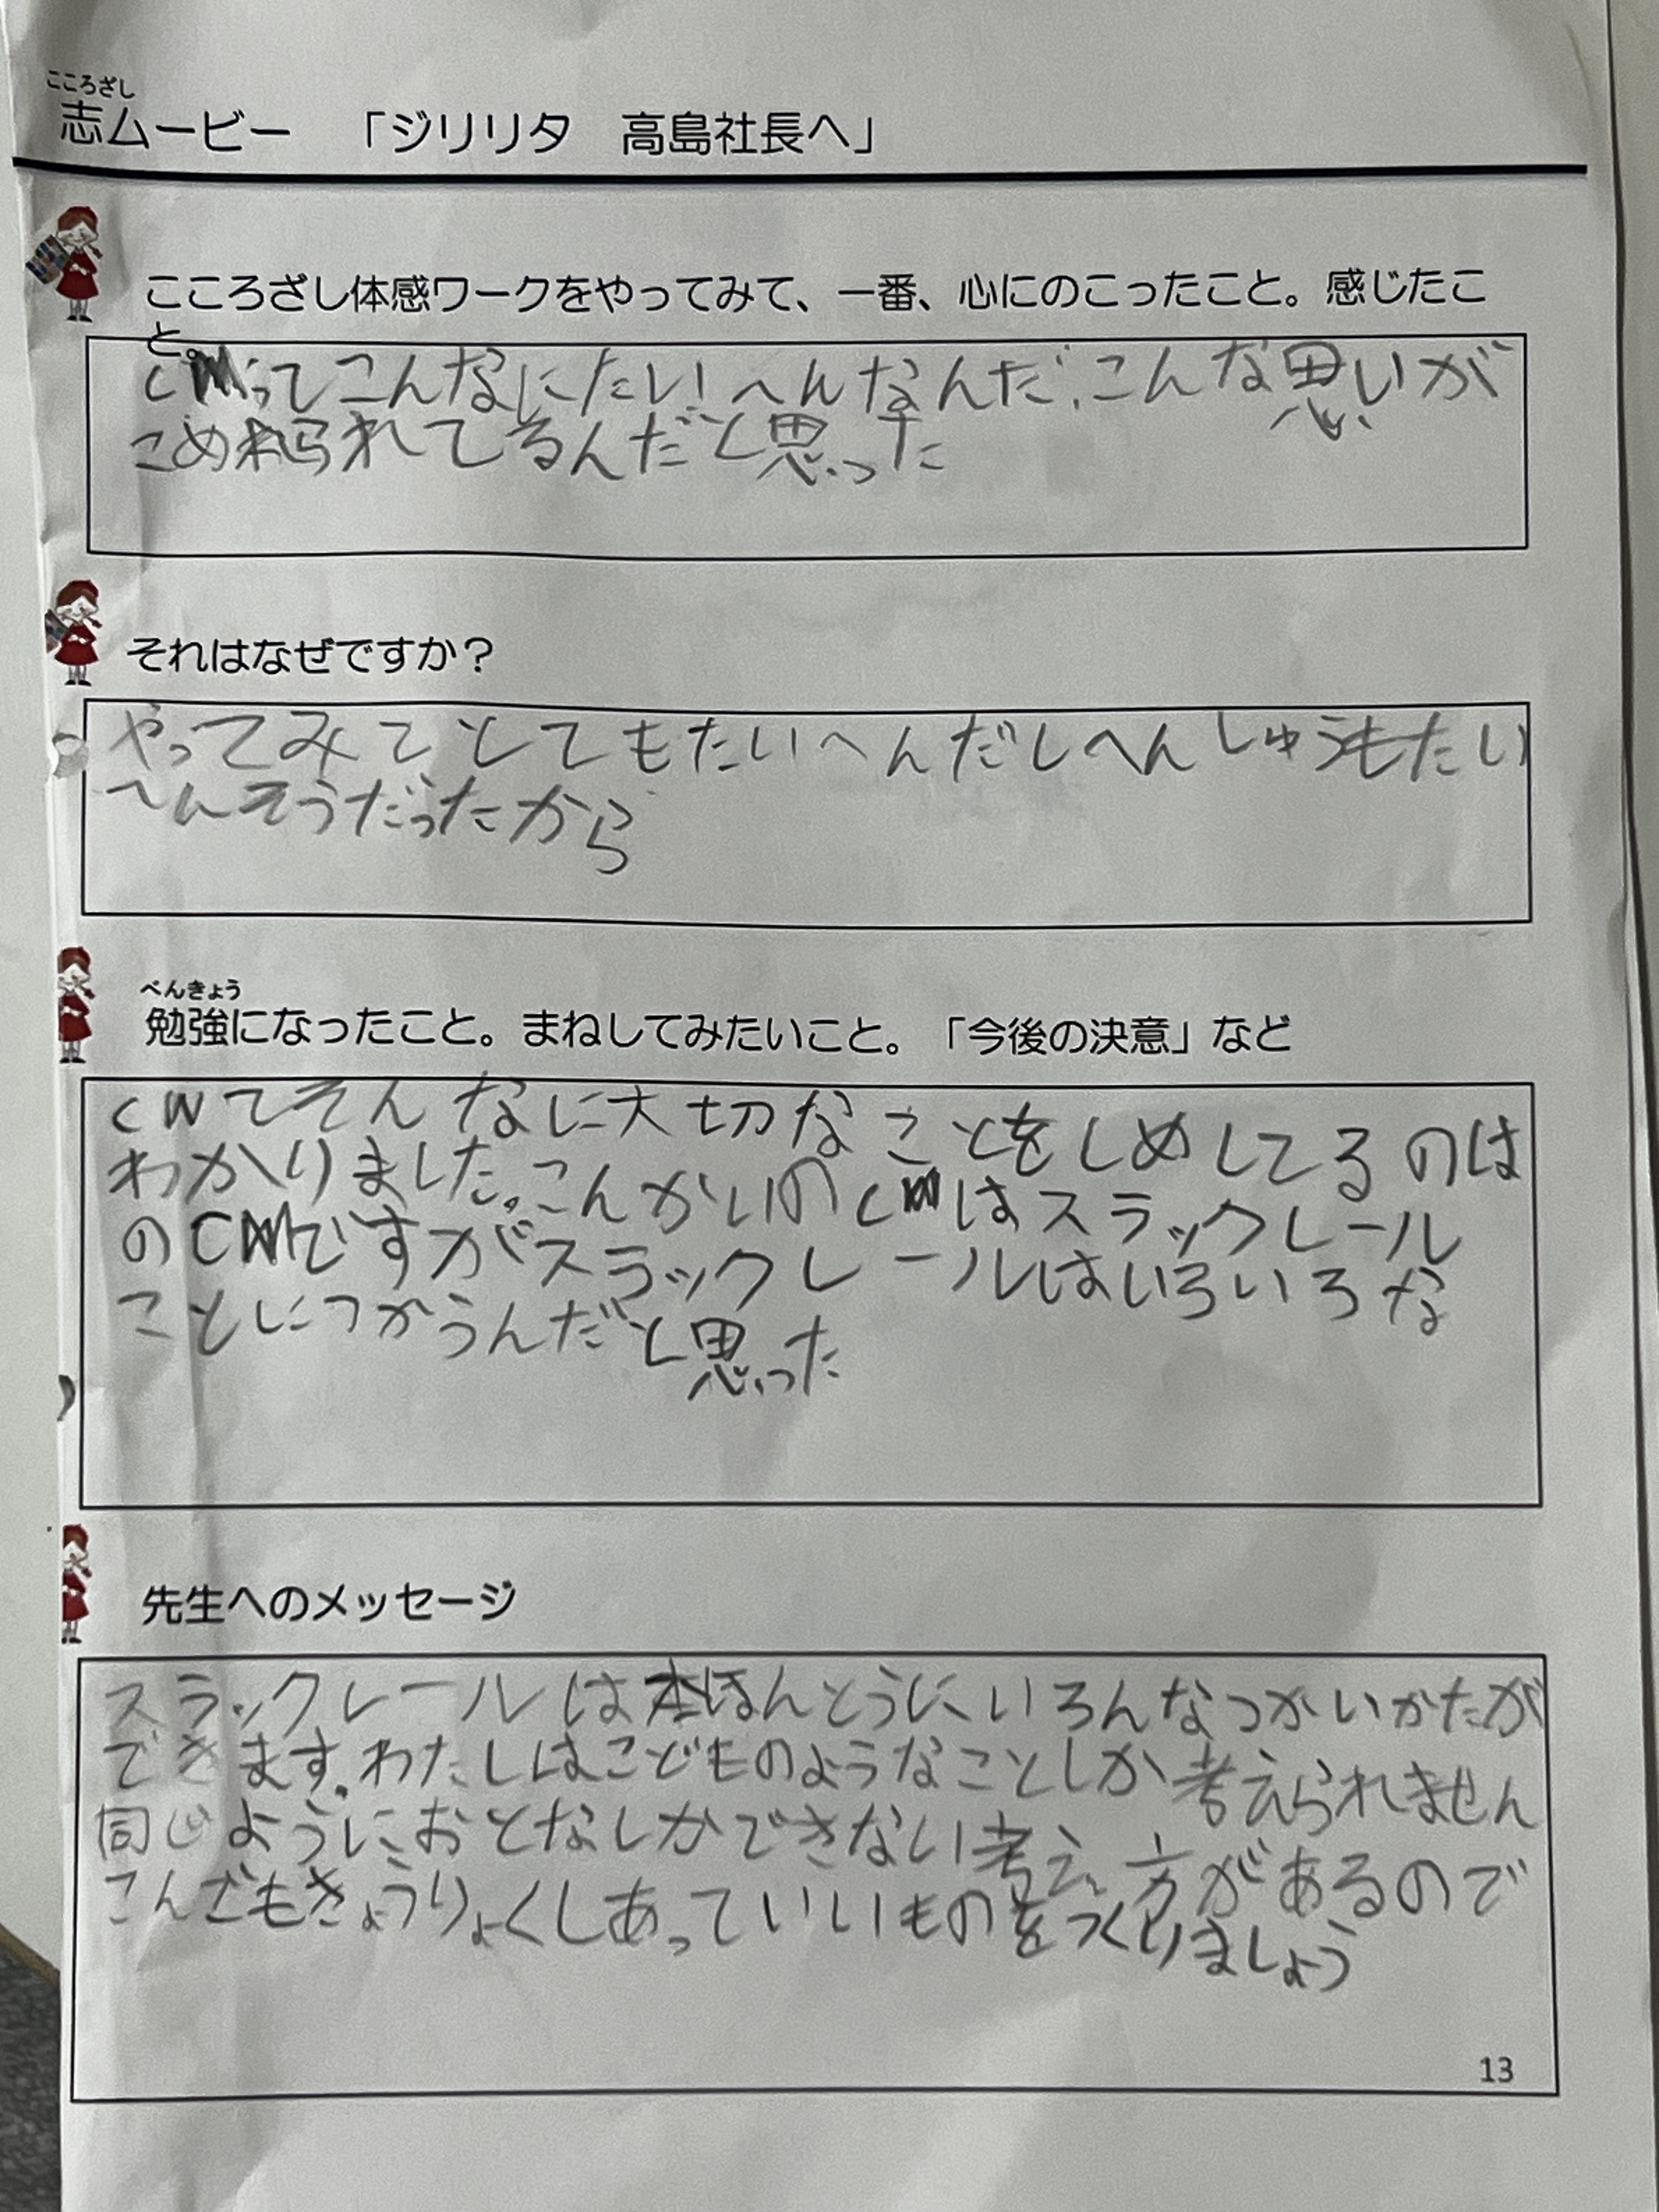 こころざし
志ムービー 「ジリリタ 高島社長へ」
こころざし体感ワークをやってみて、一番、心にのこったこと。感じたこ
と。
CMってこんなにたいへんなんだ、こんな思いが
こめられてるんだと思った
それはなぜですか？
やってみてとてもたいへんだしへんしゅうもたい
へんそうだったから
べんきょう
勉強になったこと。まねしてみたいこと。「今後の決意」など
CMてそんなに大切なことをしめしてるのは
わかりました。こんかいのCMはスラックレール
のCMですがスラックレールはいろいろな
ことにつかうんだと思った
先生へのメッセージ
スラックレールはほんとうにいろんなつかいかたが
できます。わたしはこどものようなことしか考えられません
同じようにおとなしかできない考え方があるので
こんどもきょうりょくしあっていいものをつくりましょう
13